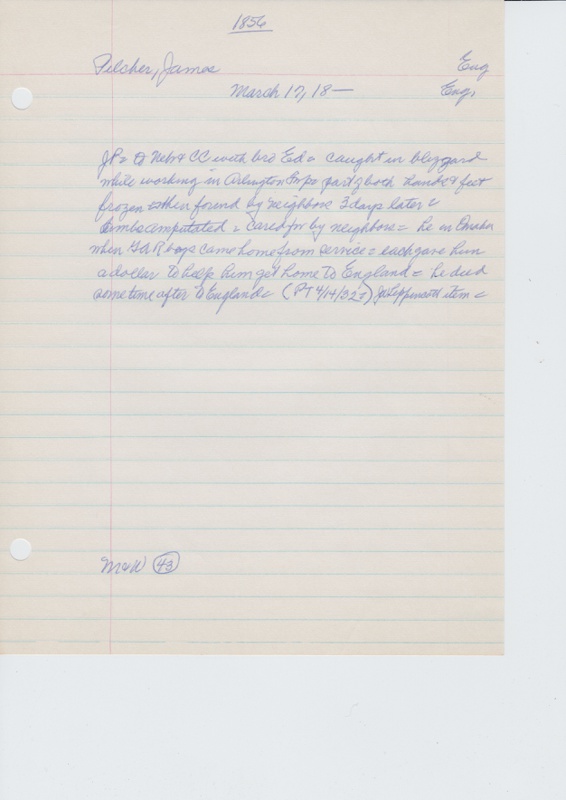 1856
Pilcher, James Eng
March 17, 18— Eng,
JP = to Neb & CC with bro Ed = caught in blizzard
while working in Arlington = part of both hands & feet
frozen = then found by neighbors 3 days later =
limbs amputated = cared for by neighbors = he in Omaha
when GAR boys came home from service = each gave him
a dollar to help him get home to England = he died
some time after to England = (PT 4/14/32 ) Lippincott item =
M&W 43